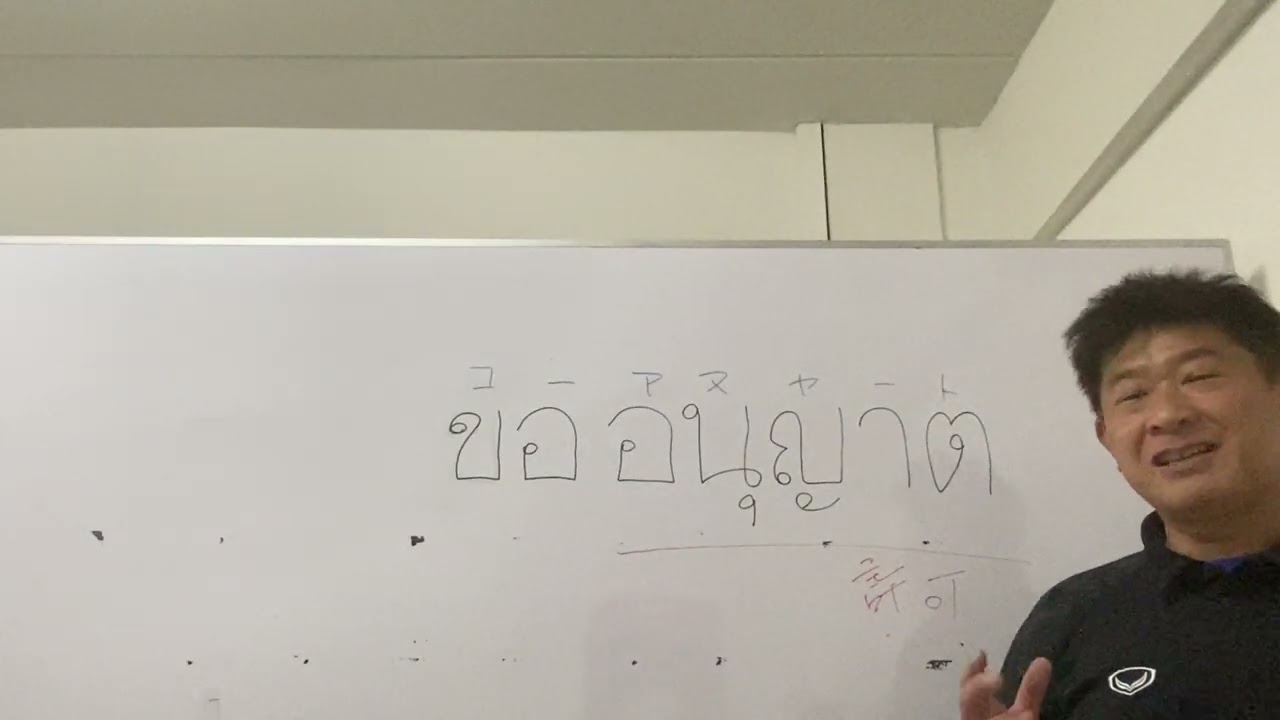 コー アヌヤート
ขออนุญาต
許可